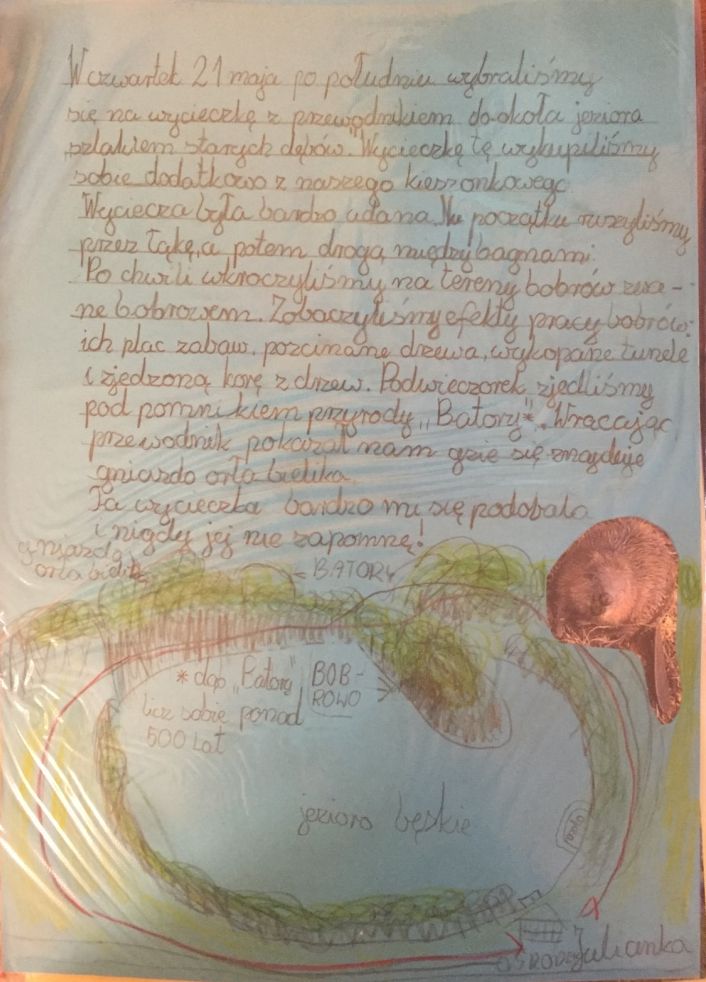 W czwartek 21 maja po południu wybraliśmy
się na wycieczkę z przewodnikiem do okoła jeziora
„szlakiem starych dębów." Wycieczkę tę wykupiliśmy
sobie dodatkowo z naszego kieszonkowego.
Wyciecza była bardzo udana. Na początku ruszyliśmy
przez łąkę, a potem drogą między bagnami.
Po chwili wkroczyliśmy na tereny bobrów zwa-
ne bobrowem. Zobaczyliśmy efekty pracy bobrów:
ich plac zabaw, pozcinane drzewa, wykopane tunele
i zjedzoną korę z drzew. Podwieczorek zjedliśmy
pod pomnikiem przyrody „Batory"*. Wracając
przewodnik pokazał nam gdzie się znajduje
gniazdo orła bielika.
Ta wycieczka bardzo mi się podobała
i nigdy jej nie zapomnę!
gniazdo
orła bielika
BATORY
* dąb „Batory"
licz sobie ponad
500 lat
BOB-
ROWO
jezioro łęskie
OŚRODEK
Julianka